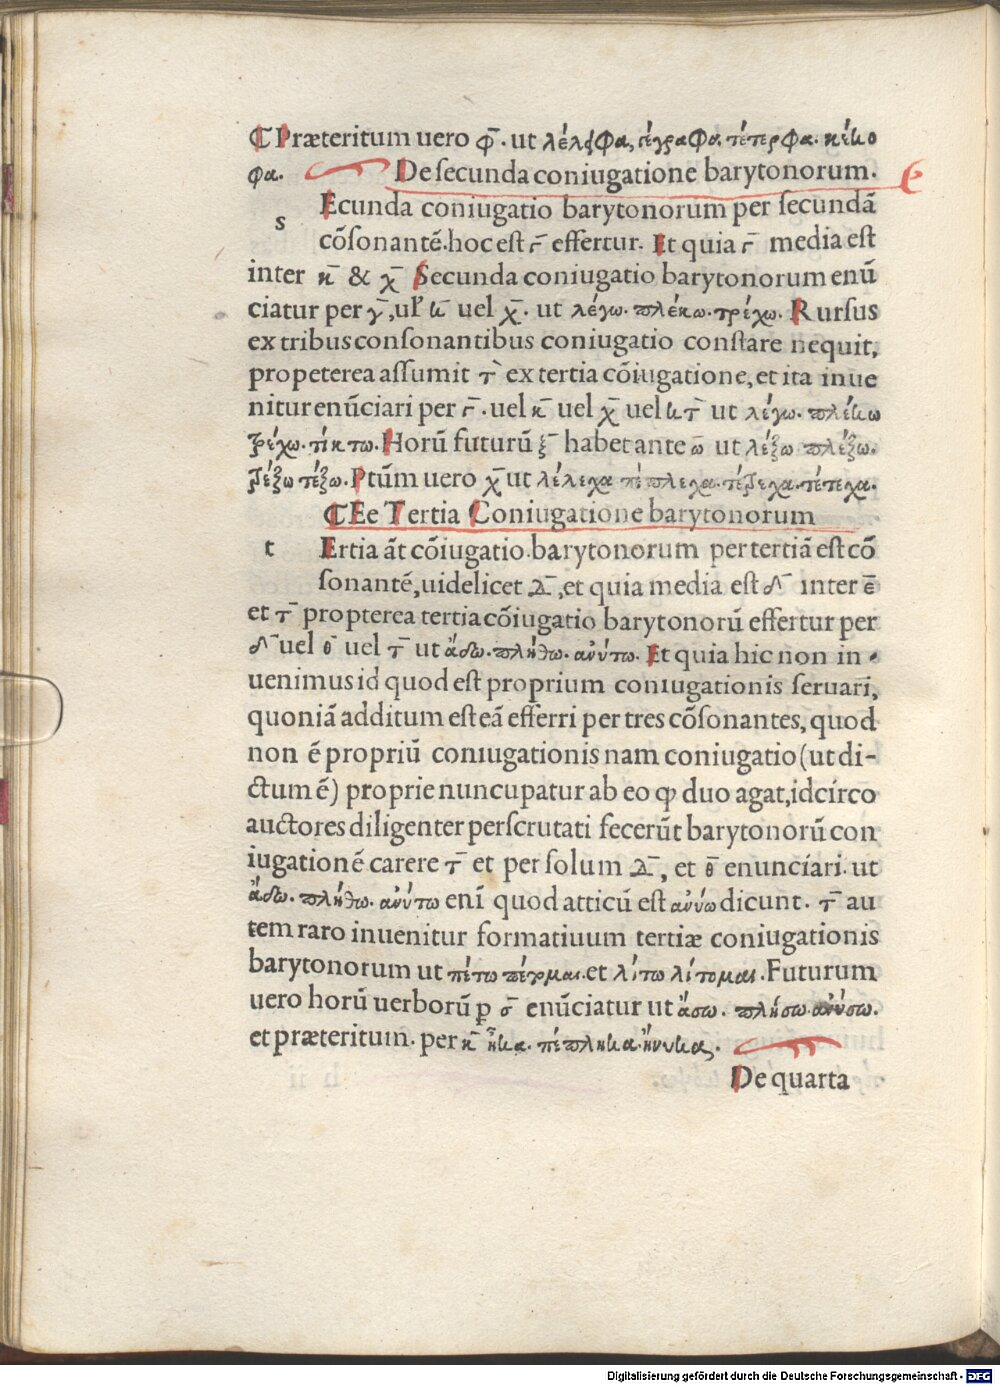 ₵ Præteritum uero φ̄. ut λέλειφα, ἔγραφα. τέτερφα. κέκο
φα. De secunda coniugatione barytonorum.
s Ecunda coniugatio barytonorum per secundã
cõsonantẽ. hoc est γ̄ effertur. Et quia γ̄ media est
inter κ̄ & χ̄ Secunda coniugatio barytonorum enũ
ciatur per γ̄, uł κ̄ uel χ̄. ut λέγω. πλέκω. τρέχω. Rursus
ex tribus consonantibus coniugatio constare nequit,
propeterea assumit τ̄ ex tertia cõiugatione, et ita inue
nitur enũciari per γ̄. uel κ̄ uel χ̄ uel κτ̄ ut λέγω. πλέκω
τρέχω. τίκτω. Horũ futurũ ξ̄ habet ante ω̄ ut λέξω πλέξω.
τρέξω τέξω. Ptũm uero χ̄ ut λέλεχα πέπλεχα. τέτρεχα. τέτεχα.
₵ Ee Tertia Coniugatione barytonorum
t Ertia ãt cõiugatio. barytonorum per tertiã est cõ
sonantẽ, uidelicet Δ̄, et quia media est δ̄ inter θ̄
et τ̄ propterea tertia cõiugatio barytonorũ effertur per
δ̄ uel θ̄ uel τ̄ ut ἄδω. πλήθω. ανύτω. Et quia hic non in
uenimus id quod est proprium coniugationis seruari,
quoniã additum est eã efferri per tres cõsonantes, quod
non ẽ propriũ coniugationis nam coniugatio (ut di-
ctum ẽ) proprie nuncupatur ab eo ꝙ duo agat, idcirco
auctores diligenter perscrutati fecerũt barytonorũ con
iugationẽ carere τ̄ et per solum Δ̄, et θ̄ enunciari. ut
ἄδω. πλήθω. ανύτω enĩ quod atticũ est ανύω dicunt. τ̄ au
tem raro inuenitur formatiuum tertiæ coniugationis
barytonorum ut πέτω πέτομαι. et λίτω λίτομαι. Futurum
uero horũ uerborũ ꝑ σ̄ enũciatur ut ἄσω. πλήσω. ανύσω.
et præteritum. per κ̄ ἦκα. πέπληκα. ἤνυκα.
De quarta
Digitalisierung gefördert durch die Deutsche Forschungsgemeinschaft - DFG